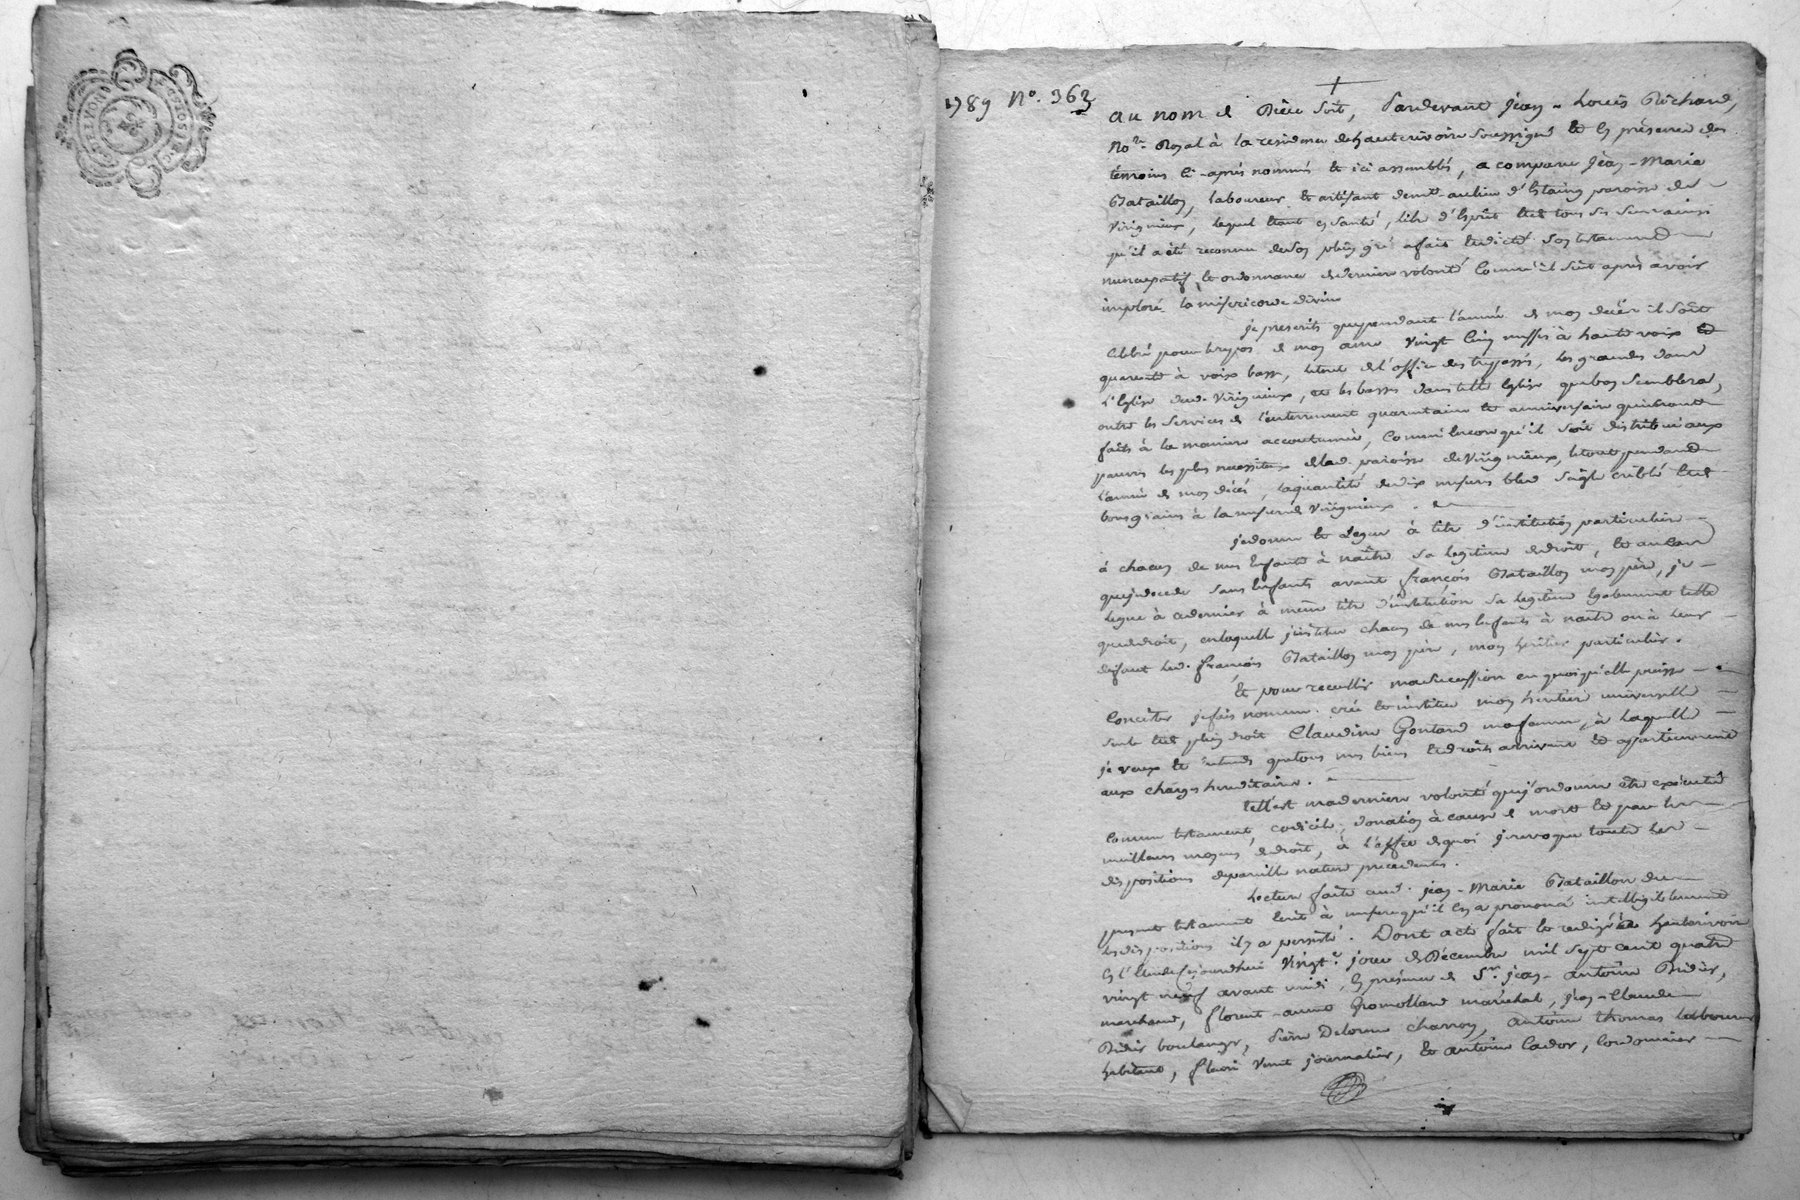 1789 N°. 363
au nom de Dieu soit, Pardevant jean-Louis Richard,
No.re Royal à la residence de hauterivoire soussigné et en presence des
témoins ci-après nommés et ici assemblés, a comparu jean-Marie
Bataillon, laboureur et artisant demt. au lieu d'Estaing paroisse de
Virigneux, lequel étant en santé, libre d'esprit et de tous ses sens ainsi
qu'il a été reconnu de son plein gré a fait et dicté son testament
nuncupatif et ordonnance de derniere volonté comme il suit après avoir
imploré la misericorde divine
je prescrits que pendant l'année de mon decès il soit
celebré pour le repos de mon ame vingt cinq messes à haute voix et
quarente à voix basse, le tout de l'office des trépassés, les grandes dans
l'Eglise dud. Virigneux, et les basses dans telle Eglise que bon semblera,
outre les services de l'enterrement quarantaine et anniversaire qui seront
faits à la maniere accoutumée, comme encore qu'il soit distribué aux
pauvres les plus necessiteux de lad. paroisse de Virigneux, le tout pendant
l'année de mon décès, la quantité de dix mesures bled seigle criblé et de
bons grains à la mesure de Virigneux.
je donne et Legue à titre d'institution particuliere
à chacun de mes Enfants à naitre sa legitime de droit, et au cas
que je décede sans Enfants avant françois Bataillon mon père, je
legue à ce dernier à même titre d'institution sa legitime egalement telle
que de droit, en laquelle j'institue chacun de mes Enfants à naitre ou à leur
defaut led. françois Bataillon mon père, mon heritier particulier.
Et pour recuellir ma succession en quoi qu'elle puisse
consister je fais nomme crée et institue mon heritiere universelle
seule et de plein droit Claudine Gontard ma femme, à laquelle
je veux et entends que tous mes biens et droits arrivent et appartiennent
aux charges hereditaires.
telle est ma derniere volonté que j'ordonne être exécuté
comme testament, codicile, donation à cause de mort et par les
meilleurs moyens de droit, à l'effet de quoi je revoque toutes les
dispositions de pareille nature precedentes.
Lecture faite aud. jean-Marie Bataillon du
present testament écrit à mesure qu'il en a prononcé intelligiblement
les dispositions il y a persisté. Dont acte fait et redigé à hauterivoire
en l'Etude cejourdhui vingt.e jour de Décembre mil sept cent quatre
vingt neuf avant midi, en presence de Sr. jean-antoine Didier,
marchand, florent-aimé Gromolland maréchal, jean-Claude
Didier boulanger, Pierre Delorme charron, antoine thomas labboureur
habitant, fleuri Venet journalier, et antoine Cador, cordonnier